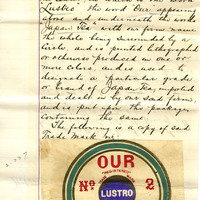 Lustro" the word "Our" appearing
above and underneath the words
"Japan Tea" with our firm name
the whole being surrounded by a
Circle, and is printed lithographed
or otherwise produced in one or
more Colors, and is used to
designate a particular grade
or brand of Japan Tea, imported
and dealt in by our said firm,
and is put on the packages
containing the same.
The following is a copy of said
Trade Mark viz:
OUR
No 2
LUSTRO